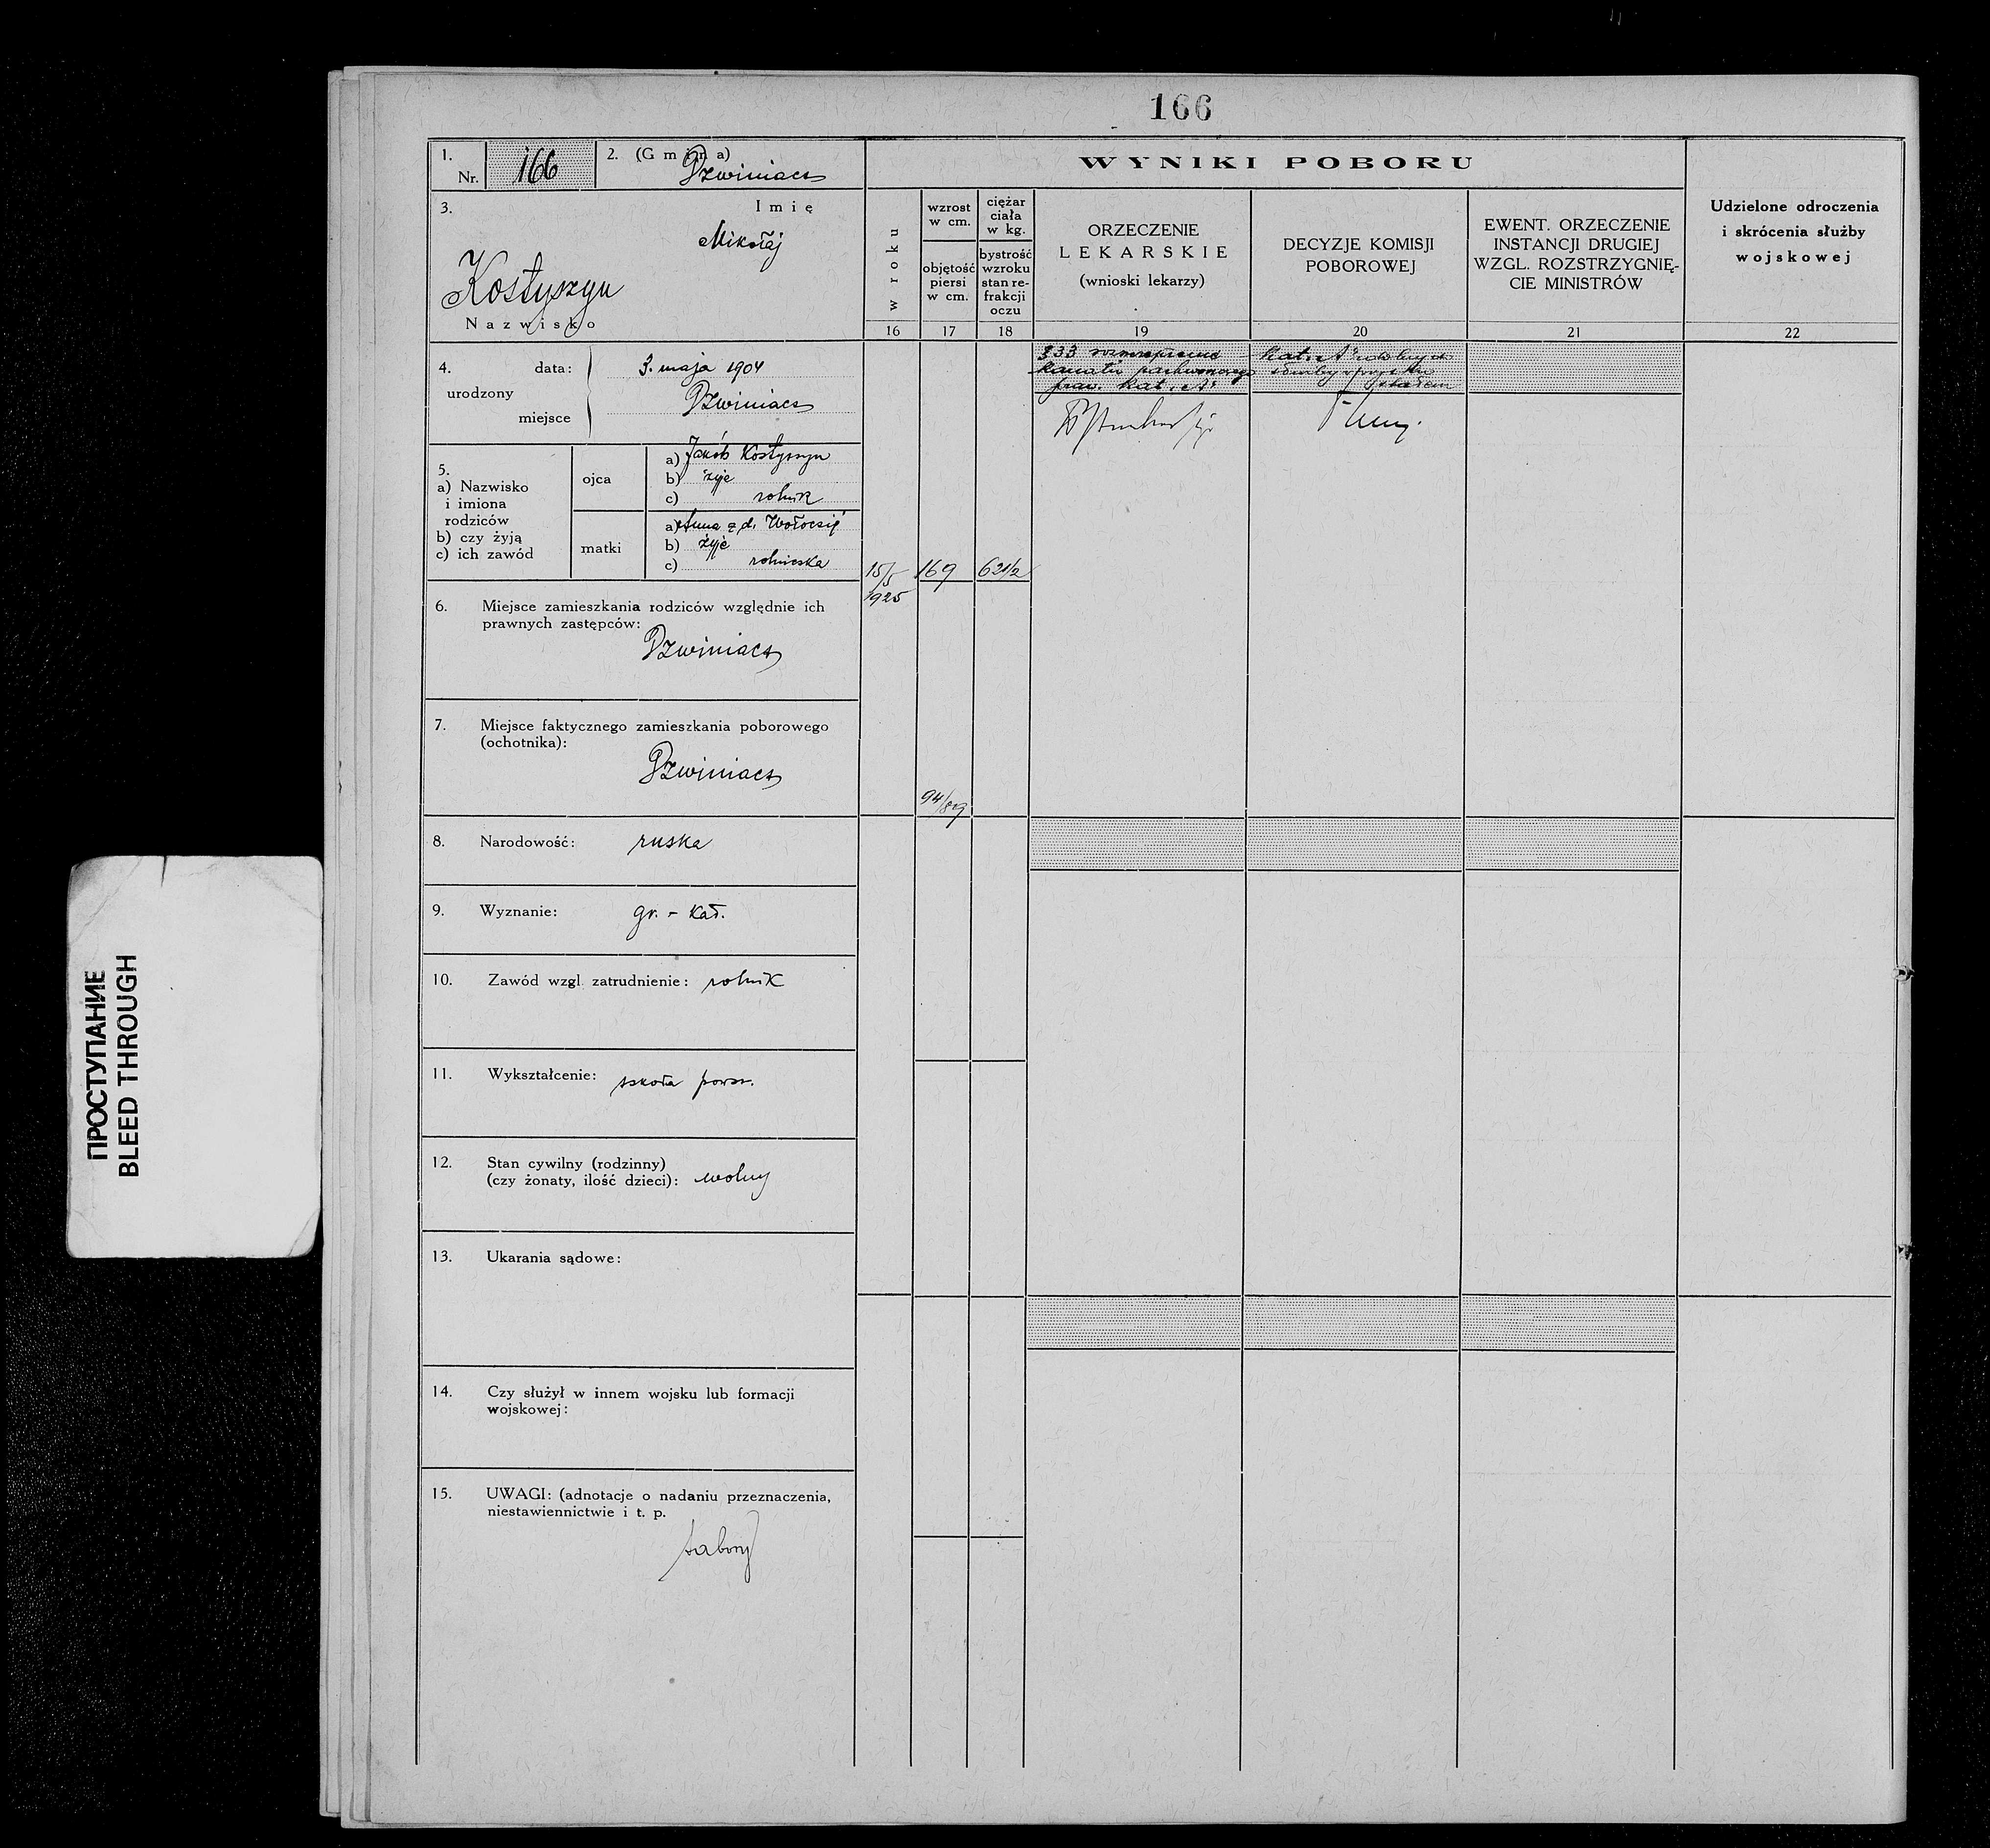 166
1.
Nr. 166
2. (Gmina)
Dzwiniacz
3.
Imię
Mikołaj
Kostyszyn
Nazwisko
4.
urodzony
data: 3. maja 1904
miejsce Dzwiniacz
5.
a) Nazwisko
i imiona
rodziców
b) czy żyją
c) ich zawód
ojca
a) Jakób Kostyszyn
b) żyje
c) rolnik
matki
a) Anna z d.
b) żyje
c) rolniczka
6. Miejsce zamieszkania rodziców względnie ich
prawnych zastępców:
Dzwiniacz
7. Miejsce faktycznego zamieszkania poborowego
(ochotnika):
Dzwiniacz
8. Narodowość: ruska
9. Wyznanie: gr. - kat.
10. Zawód wzgl. zatrudnienie: rolnik
11. Wykształcenie: szkoła powsz.
12. Stan cywilny (rodzinny)
(czy żonaty, ilość dzieci): wolny
13. Ukarania sądowe:
14. Czy służył w innem wojsku lub formacji
wojskowej:
15. UWAGI: (adnotacje o nadaniu przeznaczenia,
niestawiennictwie i t. p.
tabory
WYNIKI POBORU
w roku
wzrost
w cm.
objętość
piersi
w cm.
ciężar
ciała
w kg.
bystrość
wzroku
stan re-
frakcji
oczu
ORZECZENIE
LEKARSKIE
(wnioski lekarzy)
DECYZJE KOMISJI
POBOROWEJ
EWENT. ORZECZENIE
INSTANCJI DRUGIEJ
WZGL. ROZSTRZYGNIĘ-
CIE MINISTRÓW
Udzielone odroczenia
i skrócenia służby
wojskowej
16 17 18 19 20 21 22
15/5
1925
169
62 1/2
94/89
333
kanału pachwinowego
praw. kat. A
kat. A
ПРОСТУПАНИЕ
BLEED THROUGH